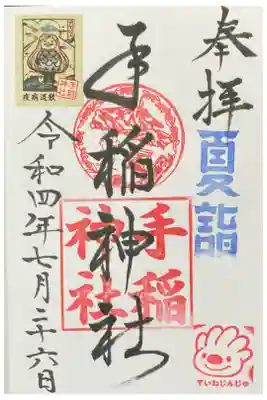 奉拝
夏詣
手稲神社
手稲
神社
ていねじんじゃ
令和四年七月二十六日
疫病退散